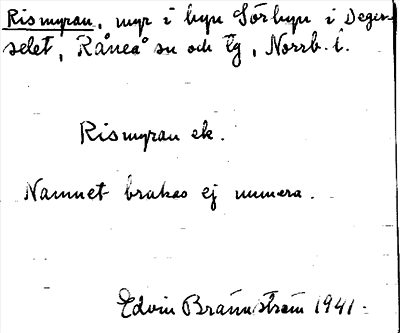 Rismyran, myr i byn Sörbyn i Degerselet, Råneå sn och tg, Norrb. l.
Rismyran ek.
Namnet brukas ej numera.
Edvin Brännström 1941.